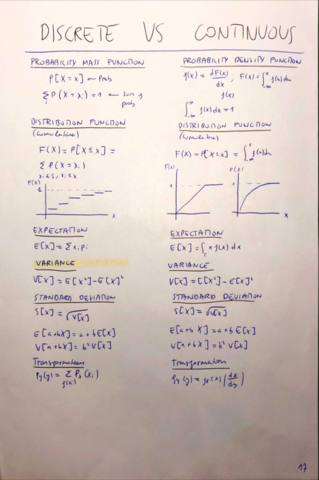 DISCRETE VS CONTINUOUS
PROBABILITY MASS FUNCTION
P[X=x] ← Prob
∑ P(X=xᵢ)=1 ← Sum of
probs
DISTRIBUTION FUNCTION
(cumulative)
F(X)=P[X≤x]=
∑ P(X=xᵢ)
F(x)
1
x
EXPECTATION
E[X]=∑xᵢpᵢ
VARIANCE
V[X]=E[X²]-E[X]²
STANDARD DEVIATION
S[X]=√V[X]
E[a+bX]=a+bE[X]
V[a+bX]=b²V[X]
Transformation
PROBABILITY DENSITY FUNCTION
f(x)=dF(x)/dx ; F(x)=∫f(x)dx
∫f(x)dx=1
DISTRIBUTION FUNCTION
(cumulative)
F(x)=P[X≤x]=∫f(x)dx
F(x) F(x)
1 1
x x
EXPECTATION
E[X]=∫x f(x) dx
VARIANCE
V[X]=E[X²]-E[X]²
STANDARD DEVIATION
S[X]=√V[X]
E[a+bX]=a+bE[X]
V[a+bX]=b²V[X]
Transformation
17